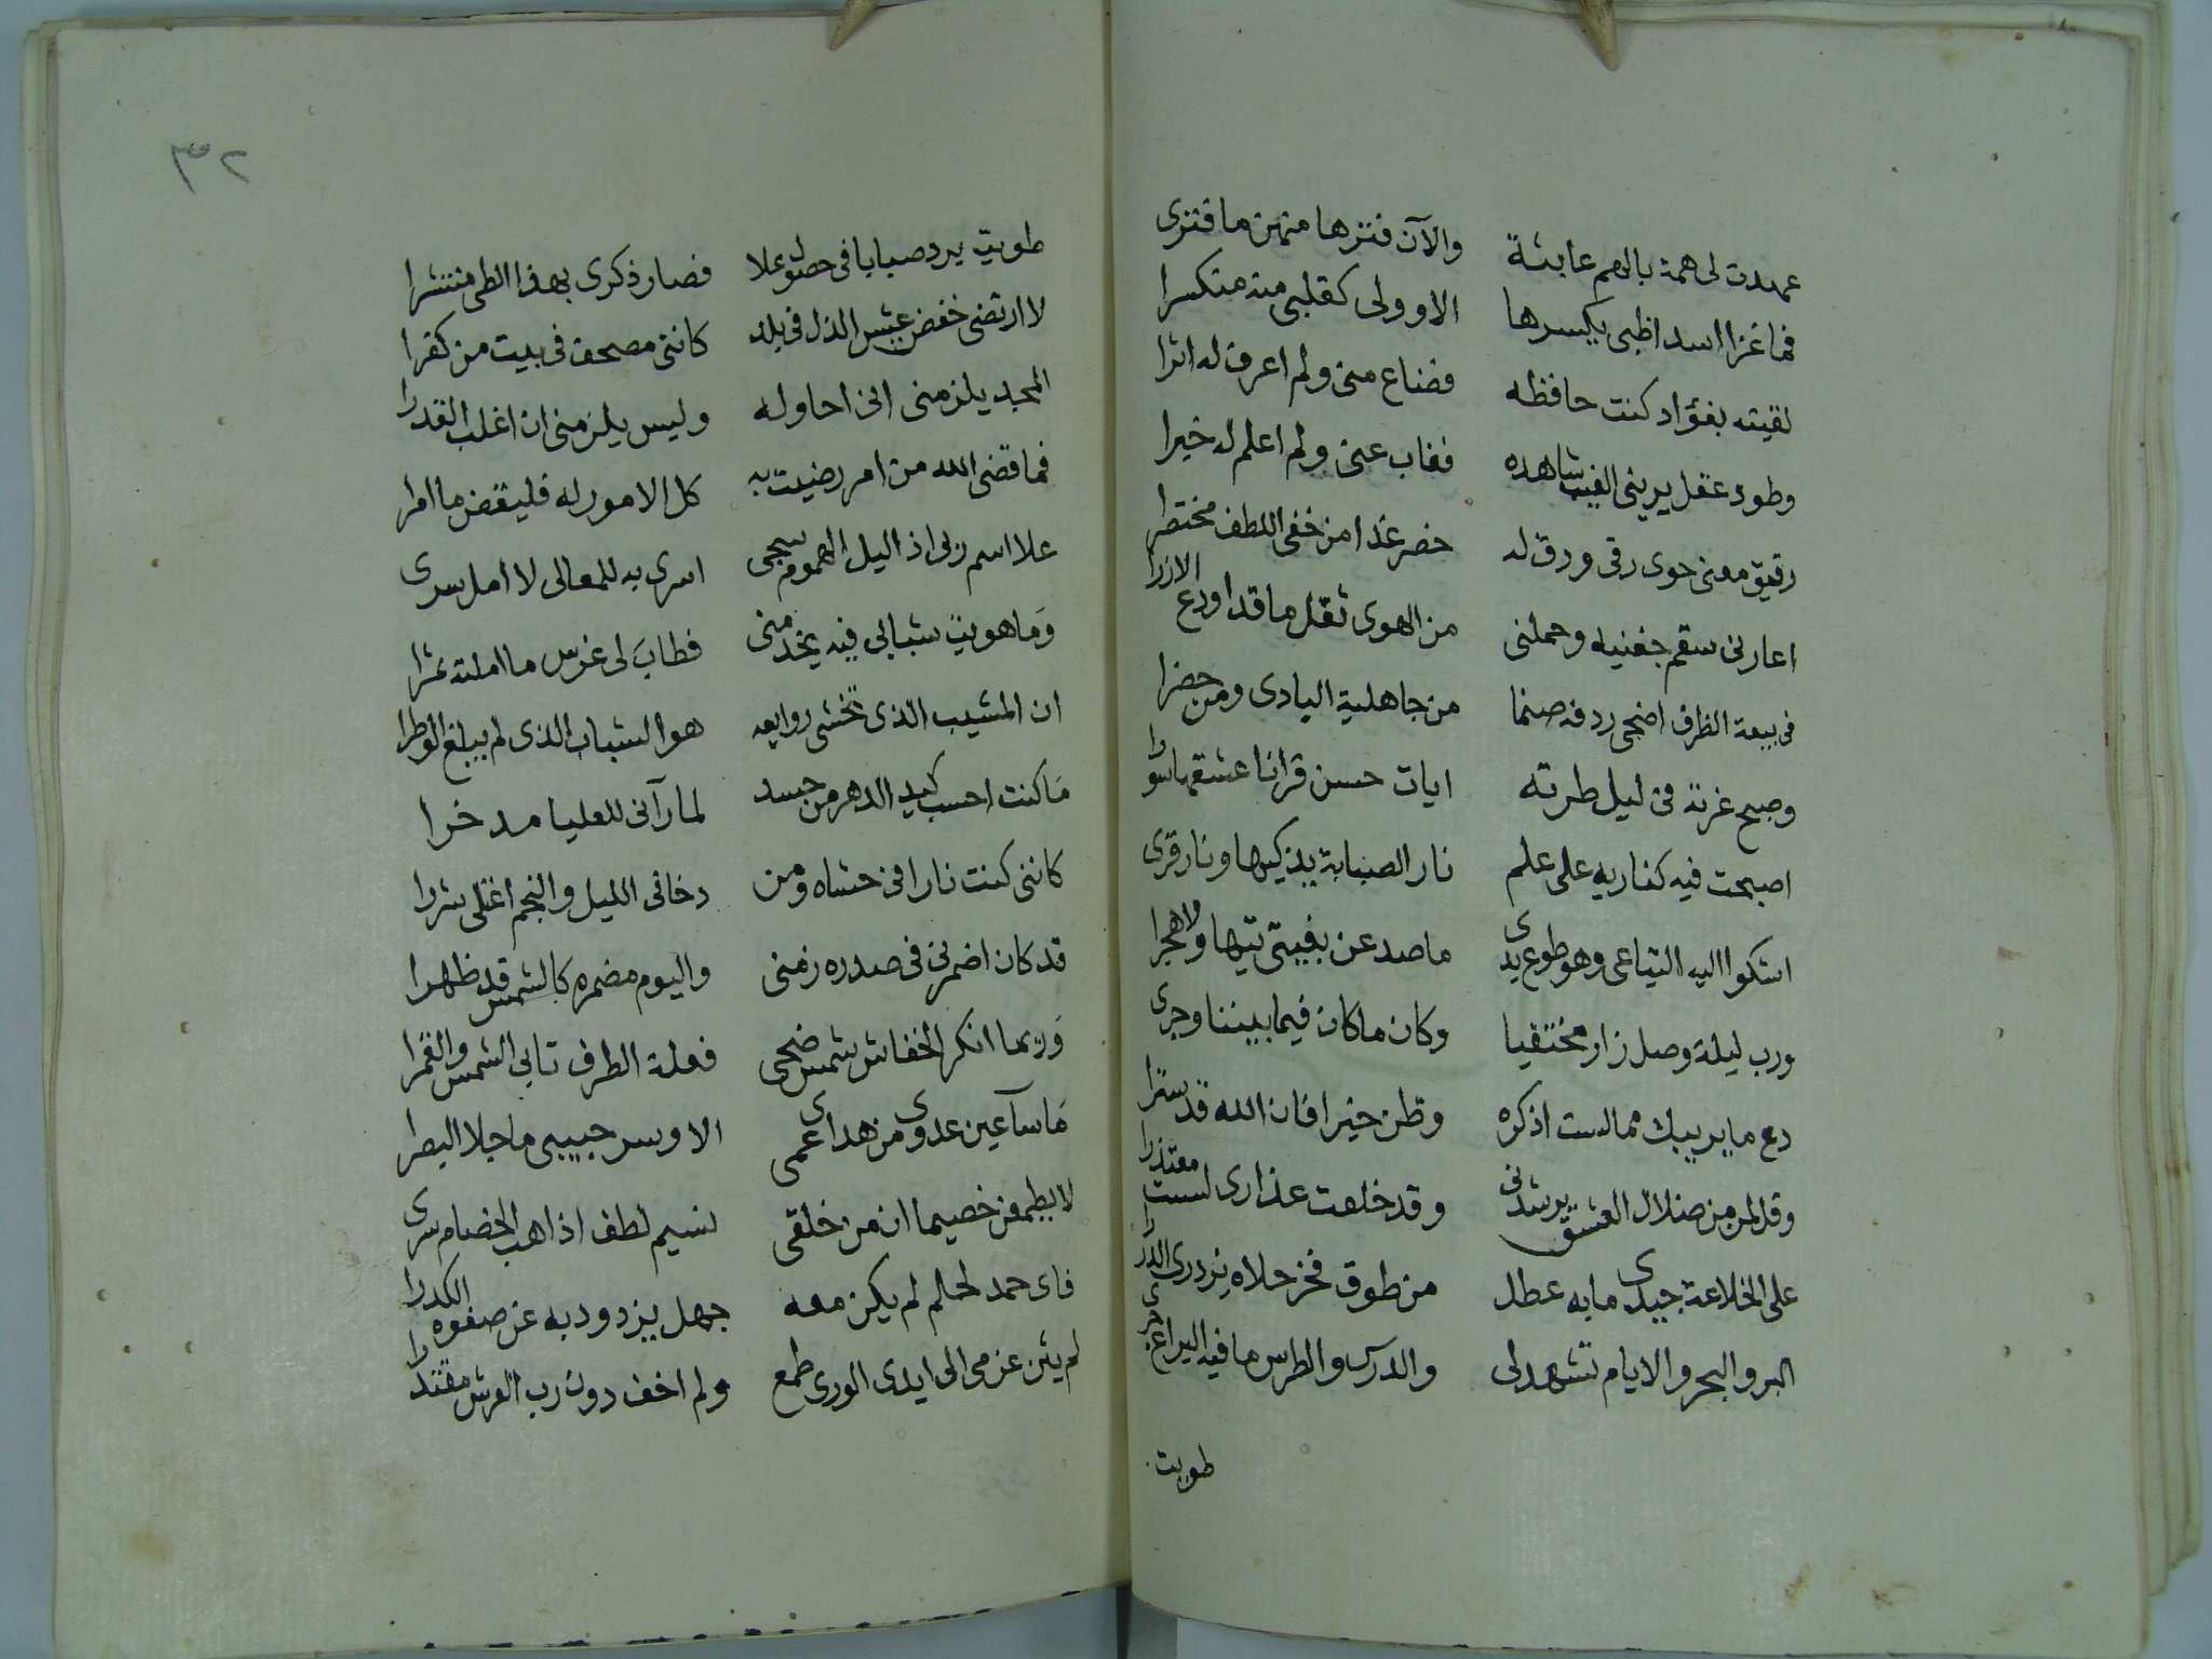 عهدت لى همة بالهم عابثة والآن فترها منهن ما فترى
فما غزا اسد اظبى يكسرها الا وولى كقلبى منه منكسرا
لقيته بفؤاد كنت حافظه فضاع منى ولم اعرف له اثرا
وطود عقل يرينى الغيب شاهده فغاب عنى ولم اعلم له خبرا
رقيق معنى حوى رقى ورق له خضر غدا من خفى اللطف مختطرا
اعارنى سقم جفنيه وحملنى من الهوى ثقل ما قد اودع الازرا
فى بيعة الظرف اضحى ردفه صنما من جاهلية البادى ومن حضرا
وصبح غرة فى ليل طرته ايات حسن قرانا عشقها سورا
اصبحت فيه كناريه على علم نار الصبابة يذكيها ونار قرى
اشكوا اليه التياعى وهو طوع يدى ما صد عن بغيتى تيها ولا هجرا
ورب ليلة وصل زار مختفيا وكان ما كان فيما بيننا وجرى
دع ما يريبك مما لست اذكره وظن خيرا فان الله قد سترا
وقل لمن من ضلال العشق يرشدنى وقد خلعت عذارى لست معتذرا
على الخلاعة جيدى ما به عطل من طوق فخر حلاه يزدرى الدررا
البر والبحر والايام تشهد لى والدرس والطرس ما فيه اليراع جرى
طويت
٣٢
طويت برد صبايا فى حصول علا فصار ذكرى بهذا الطى منتشرا
لا ارتضى خفض عيش الذل فى بلد كاننى مصحف فى بيت من كفرا
المجد يلزمنى انى احاوله وليس يلزمنى ان اغلب القدرا
فما قضى الله من امر رضيت به كل الامور له فليقض ما امرا
علا اسم زلى اذ اليل الهموم سجى اسرى به للمعالى لا امل سرى
وَما هويت شبابى فيه يخدمنى فطابَ لى غرس ما املته ثمرا
ان المشيب الذى تخشى روايعه هو الشباب الذى لم يبلغ الوطرا
مَا كنت احسب كيد الدهر من حسد لما رآنى للعليا مدخرا
كاننى كنت نارا فى حشاه ومن دخانى الليل والنجم اغتلى شررا
قد كان اضمرنى فى صدره زمنى واليوم مضمره كالشمس قد ظهرا
وَربما انكر الخفاش شمس ضحى فعلة الطرف تابى الشمس والقمرا
مَا سآ عين عدوى من هداى عمى الا وسر حبيبى ما جلا البصرا
لا يطمعن خصيما ان من خلقى نسيم لطف اذا هب الخصام سرى
فاى حمد لحلم لم يكن معه جهل يزدود به عن صفوه الكدرا
لم يثن عزمى الى ايدى الورى طمع ولم اخف دون رب العرش مقتدرا